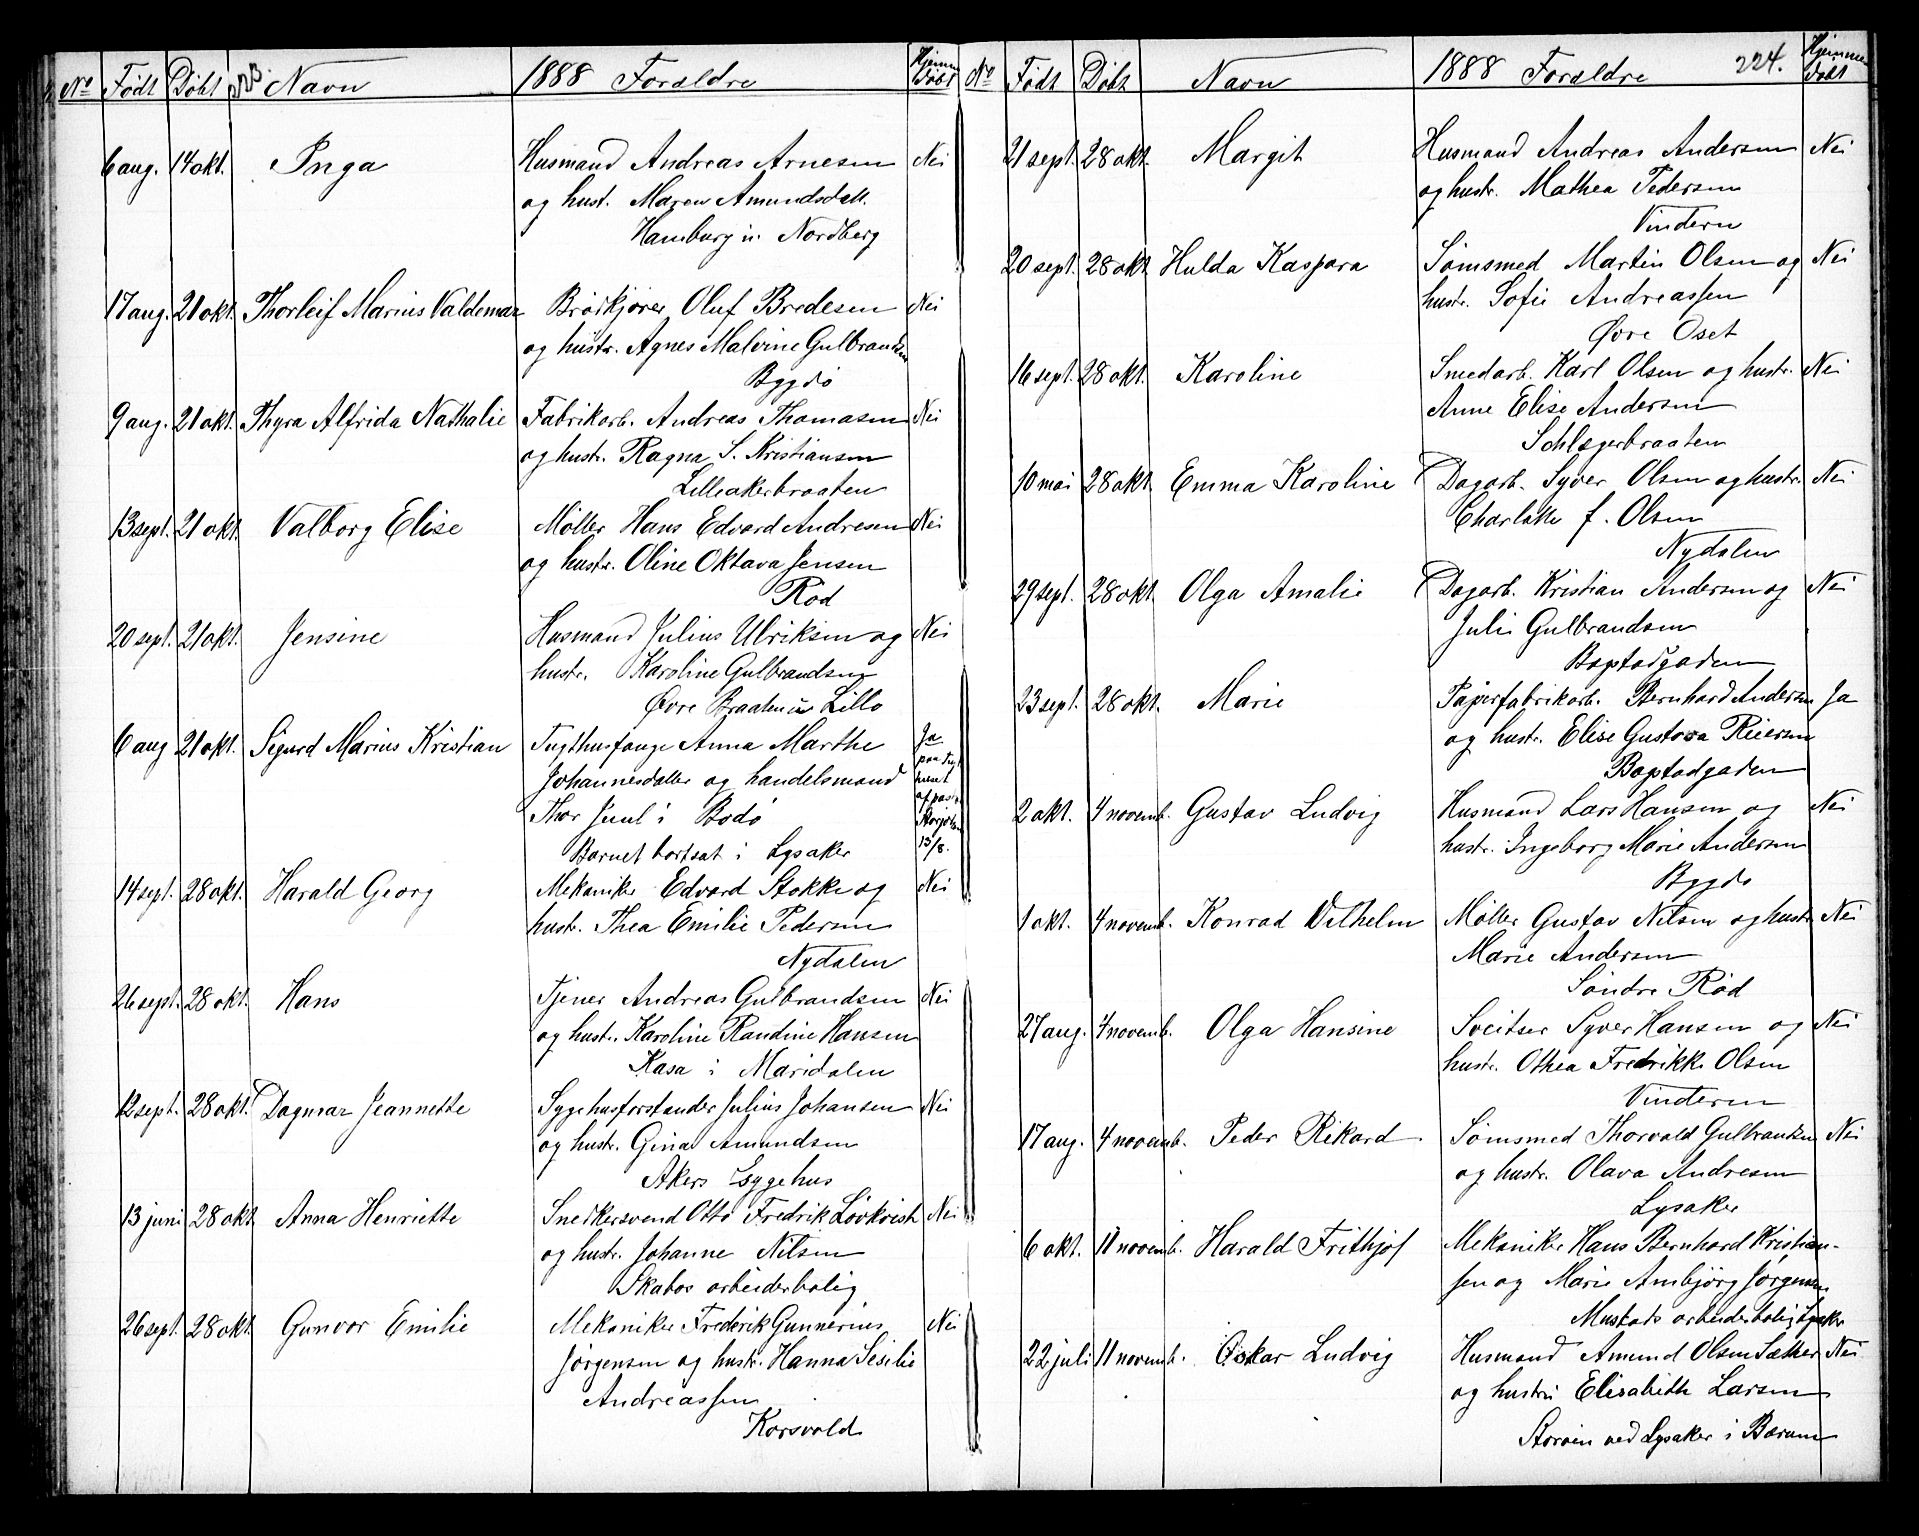 No Født Døbt Navn 1888 Forældre Hjemme Døbt
6 aug. 14 okt. Inga Husmand Andreas Arnesen Nei
og hust. Maren Amundsdatt.
Hamburg u. Nordberg
17 aug. 21 okt. Thorleif Marius Valdemar Brødkjører Oluf Bredesen Nei
og hustr. Agnes Malvine Gulbrandsen
Bygdø
9 aug. 21 okt. Thyra Alfrida Nathalie Fabrikarb. Andreas Thomasen Nei
og hustr. Ragna S. Kristiansen
Lilleakerbraaten
13 sept. 21 okt. Valborg Elise Møller Hans Edvard Andresen Nei
og hustr. Oline Oktava Jensen
Röd
20 sept. 21 okt. Jensine Husmand Julius Ulriksen og Nei
hustr. Karoline Gulbrandsen
Øvre Braaten u. Lillo
6 aug 21 okt. Sigurd Marius Kristian Tugthusfange Anna Marthe Ja
Johannesdatter og handelsmand
Thor Juul i Bodø
Barnet bortsat i Lysaker 13/8.
14 sept. 28 okt. Harald Georg Mekaniker Edvard Stokke og Nei
hustr. Thea Emilie Pedersen
Nydalen
26 sept. 28 okt. Hans Tjener Andreas Gulbrandsen Nei
og hustr. Karoline Randine Hansen
Kasa i Maridalen
12 sept. 28 okt. Dagmar Jeannette Sygehusforstander Julius Johansen Nei
og hustr. Gina Amundsen
Akers Sygehus
13 juni 28 okt Anna Henriette Snedkersvend Otto Fredrik Lövkvist Nei
og hustr. Johanne Nilsen
Skabos arbeiderbolig
26 sept. 28 okt. Gunvor Emilie Mekaniker Frederik Gunnerius Nei
Jørgensen og hustr. Hanna Sesilie
Andreassen
Korsvold
No Født Döbt Navn 1888 Forældre 224. Hjemme Døbt
21 sept. 28 okt. Margit Husmand Andreas Andersen Nei
og hustr. Mathea Pedersen
Vindern
20 sept. 28 okt Hulda Kaspara Sømsmed Martin Olsen og Nei
hustr. Sofie Andreassen
Øvre Oset
16 sept. 28 okt. Karoline Smedarb. Karl Olsen og hustr. Nei
Anne Elise Andersen
Schlægerbraaten
10 mai 28 okt. Emma Karoline Dagarb. Syver Olsen og hustr. Nei
Charlotte f. Olsen
Nydalen
29 sept. 28 okt. Olga Amalie Dagarb. Kristian Andersen og Nei
Julie Gulbrandsen
Bogstadgaden
23 sept. 28 okt. Marie Papirfabrikarb. Bernhard Andersen Ja
og hustr. Elise Gustava Reiersen
Bogstadgaden
2 okt. 4 novemb. Gustav Ludvig Husmand Lars Hansen og Nei
hustr. Ingeborg Marie Andersen
Bygdø
1 okt. 4 novemb. Konrad Vilhelm Møller Gustav Nilsen og hustr. Nei
Marie Andersen
Söndre Röd
27 aug. 4 novemb. Olga Hansine Sveitser Syver Hansen og Nei
hustr. Othea Fredrikke Olsen
Vinderen
17 aug. 4 novemb. Peder Rikard Sømsmed Thorvald Gulbrandsen Nei
og hustr. Olava Andresen
Lysaker
6 okt. 11 novemb. Harald Frithjof Mekaniker Hans Bernhard Kristian-
sen og Marie Ambjörg Jørgensen
Mustads arbeiderbolig Lysaker
22 juli 11 novemb. Oskar Ludvig Husmand Amund Olsen Sæther Nei
og hustru Elisabeth Larsen
Storøien ved Lysaker i Bærum